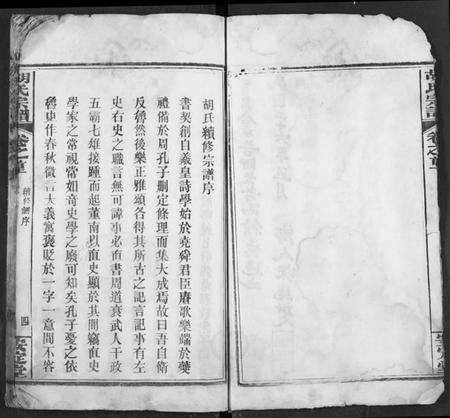 胡氏宗譜
卷之首
胡氏續修宗譜序
書契創自羲皇詩學始於堯舜君臣賡歌樂端於夔
禮備於周孔子刪定條理而集大成焉故曰吾自衛
反魯然後樂正雅頌各得其所古之記言記事有左
史右史之職言無可諱事必直書周道衰武人干政
五霸七雄接踵而起董南以直史顯於其間竊直史
學家之常視常如奇史學之廢可知矣孔子憂之依
魯史作春秋微言大義寓褒貶於一字一意間不容
胡氏宗譜
卷之首
續修譜序
四